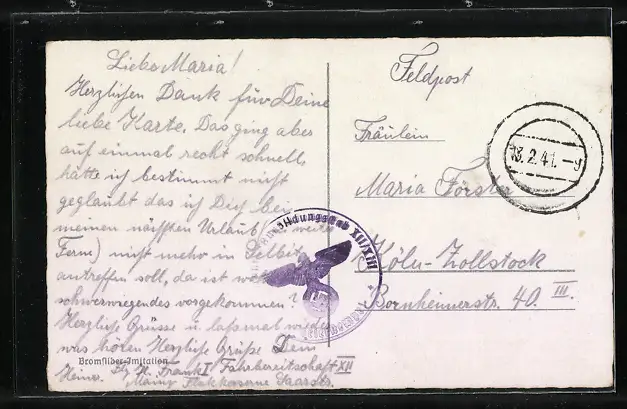 Liebe Maria!
Herzlichen Dank für Deine
liebe Karte. Das ging aber
auf einmal recht schnell.
hätte ich bestimmt nicht
geglaubt das ich Dich bei
meinen nächsten Urlaub
Form) nicht mehr in
antreffen soll, da ist
schwerwiegendes vorgekommen?
Herzliche Grüsse u. lass mal
was hören Herzliche Grüße Dein
Heinz.
Bromsilber-Imitation
Frank I Fahrbereitschaft XII
Mainz Flakkaserne Saarstr.
Feldpost
Fräulein
Maria Förster
Köln-Zollstock
Bornheimerstr. 40. III.
13.2.41.-9
XII/XIII